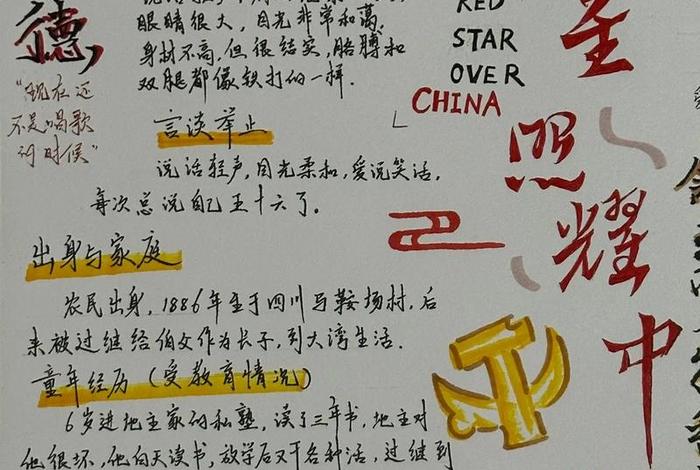 德
"现在还
不是唱歌
的时候"
眼睛很大，目光非常和蔼，
身材不高，但很结实，胳膊和
双腿都像铁打的一样．
言谈举止
说话轻声，目光柔和，爱说笑话，
每次总说自己五十六了。
出身与家庭
农民出身，1886年生于四川马鞍场村，后
来被过继给伯父作为长子，到大湾生活．
童年经历（受教育情况）
6岁进地主家的私塾，读了三年书，地主对
他很坏，他白天读书，放学后又干各种活，过继到
RED
STAR
OVER
CHINA
星
照
耀
中